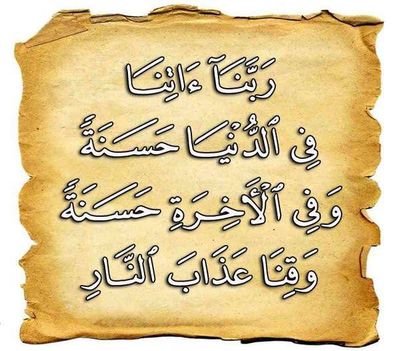 رَبَّنَآ ءَاتِنَا
فِي ٱلدُّنْيَا حَسَنَةً
وَفِي ٱلْأَخِرَةِ حَسَنَةً
وَقِنَا عَذَابَ ٱلنَّارِ